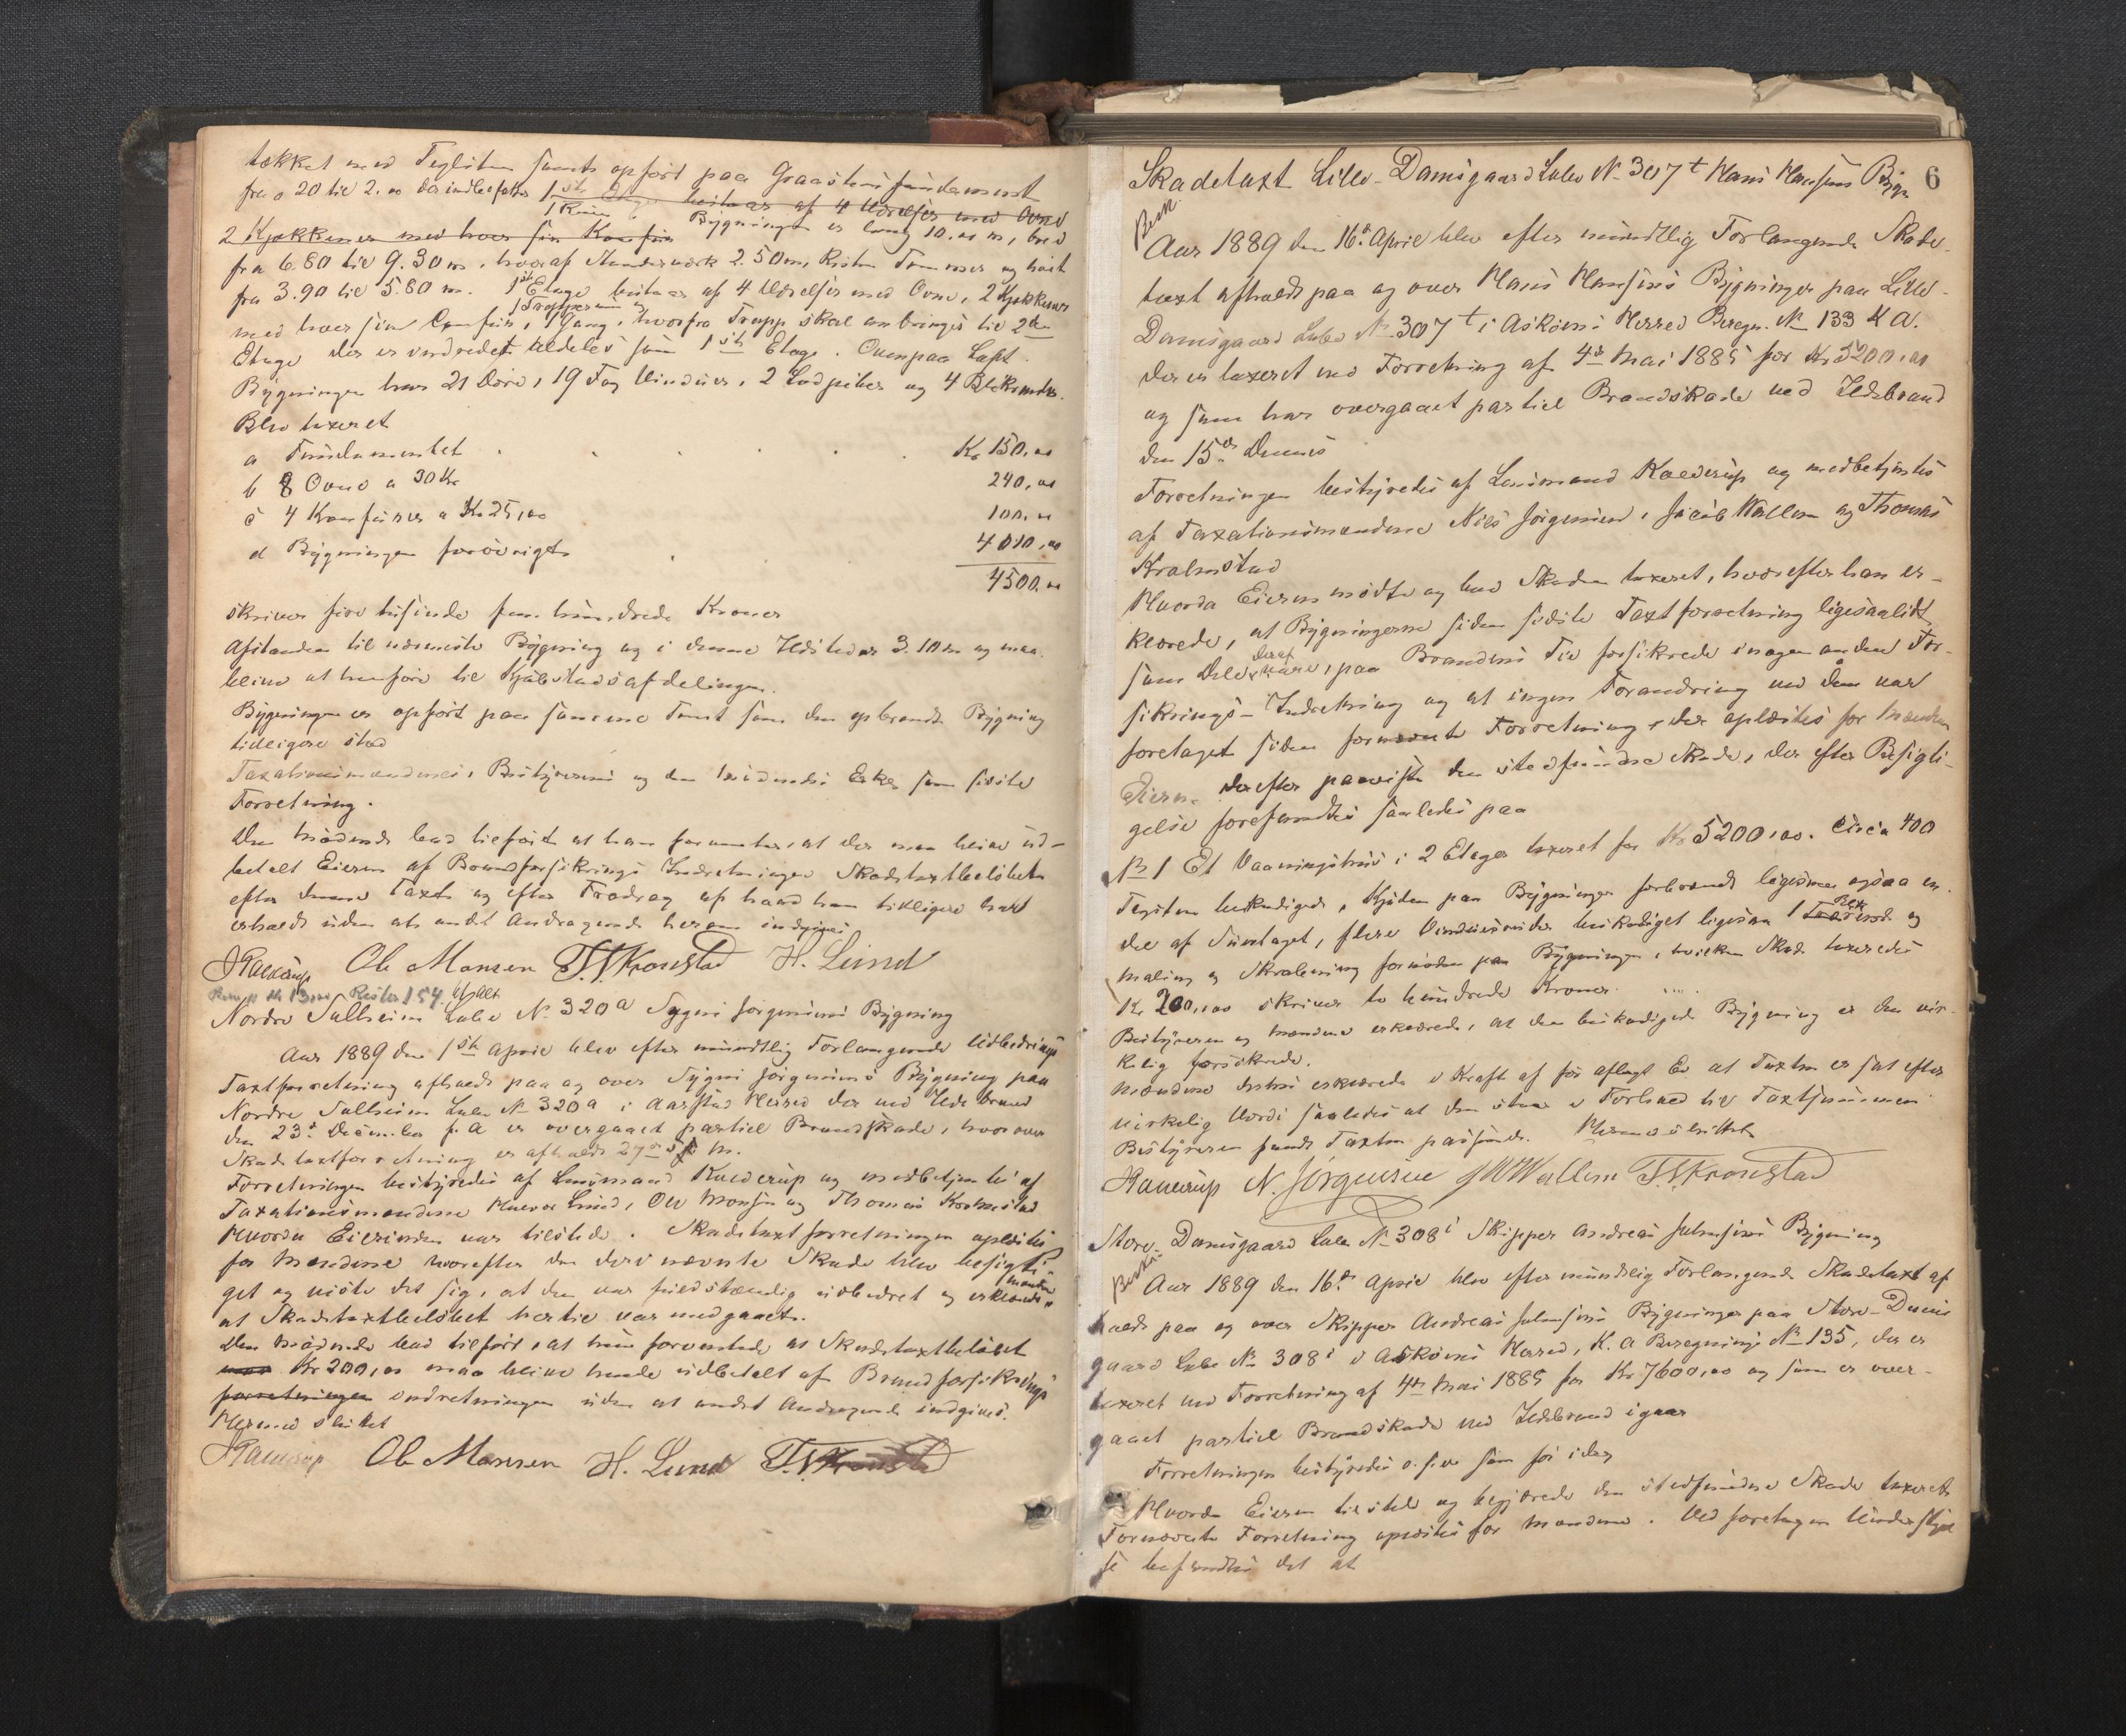 tækket med Teglsten samt opført paa Graastensfundament
fra 0.20 til 2.00 der indbefatter 1 Kjelder
1ste Etage bestaar af 4 Værelser med Ovne
2 Kjøkkener med hver sin Komfur Bygningen er lang 10.00 m, bred
fra 6.80 til 9.30 m, hvoraf Murværk 2.50 m, Resten Tømmer og høit
fra 3.90 til 5.80 m. 1ste Etage bestaar af 4 Værelser med Ovne, 2 Kjøkkener
med hver sin Comfur, 1 Gang, hvorfra Trapp skal anbringes til 2den
Etage der er indredet ligeledes som 1ste Etage. Ovenpaa Loft.
Bygningen har 21 Døre, 19 Fag Vinduer, 2 Lud piber og 4 Blikrender.
Blev taxeret
a Fundamentet Kr 150,00
b 8 Ovne a 30 Kr 240,00
c 4 Komfurer a Kr 25,00 100,00
d Bygningen forøvrigt 4010,00
4500,00
skriver fire tusinde fem hundrede Kroner
Afstanden til nærmeste Bygning og i denne Ildsted er 3.10 m og maa
blive at henføre til Kjøbstadsafdelingen.
Bygningen er opført paa samme Tomt som den opbrændte Bygning
tidligere stod
Taxationsmændenes, Bestyrerens og den Mødendes Erkl. som sidste
Forretning.
Den Mødende lod tilføre at han formoder, at der maa blive ud-
betalt Eieren af Brandforsikrings Indretningen Skadetaxtbeløbet
efter denne Taxt og efter Fradrag af hvad han tidligere har
erholdt uden at andet Andragende herom indgives
JKaldrup Ole Monsen T. S. Kronstad H. Lund
Nordre Solheim Løbe No 320a Sygni Jørgensens Bygning
Aar 1889 den 1ste April blev efter mundtlig Forlangende Udbedrings
Taxtforretning afholdt paa og over Sygni Jørgensens Bygning paa
Nordre Solheim Løbe No 320a i Aarstad Herred der ved Ildebrand
den 23de December f. A er overgaaet partiel Brandskade, hvorover
Skadetaxtforretning er afholdt 27de s. M.
Forretningen bestyredes af Lensmand Kaldrup og medbetjentes af
Taxationsmændene Halvor Lund, Ole Monsen og Thomas Kronstad
Hvorda Eierinden var tilstede. Skadetaxtforretningen oplæstes
for Mændene hvorefter den deri nævnte Skade blev besigti-
get og viste det sig, at den var fuldstændig udbedret og erklærede Mændene
at Skadetaxtbeløbet hertil var medgaaet.
Den Mødende lod tilført, at hun formodede at Skadetaxtbeløbet
Kr 200,00 maa blive hende udbetalt af Brandforsikrings
forretningen indretningen uden at andet Andragende indgives.
Hermed sluttet
JKaldrup Ole Monsen H. Lund T. S. Kronstad
6
Skadetaxt Lille-Damsgaard Løbe No 307t Hans Hansens Bygn
Besk.
Aar 1889 den 16de April blev efter mundtlig Forlangende Skade-
taxt afholdt paa og over Hans Hansens Bygninger paa Lille-
Damsgaard Løbe No 307t i Askøens Herred Beregn. No 133 K A.
der er taxeret ved Forretning af 4de Mai 1885 for Kr 5200,00
og som har overgaaet partiel Brandskade ved Ildebrand
den 15de Dennes
Forretningen bestyredes af Lensmand Kaldrup og medbetjentes
af Taxationsmændene Nils Jørgensen, Jacob Wallem og Thomas
Kronstad
Hvorda Eieren mødte og lod Skaden taxeret, hvorefter han er-
klærede, at Bygningerne siden sidste Taxtforretning ligesaalidt
som Dele deraf, paa Brandens Tid forsikrede i nogen anden For-
sikrings-Indretning og at ingen Forandring ved dem var
foretaget siden fornævnte Forretning, der oplæstes for Mændene
Eieren derefter paaviste den stedfundne Skade, der efter Besigti-
gelse forefandtes saaledes paa
No 1 Et Vaaningshus i 2 Etager taxeret for Kr 5200,00. Circa 400
Tegsten beskadiget, Kjølen paa Bygningen forbrændt ligesom ogsaa en
del af Suntaget, flere Vinduesruder beskadiget ligesaa 1 og
maling og Skrabning fornøden paa Bygningen, hvilken Skade taxeredes
Kr 200,00 skriver to hundrede Kroner.
Bestyreren og Mændene erklærede, at den beskadigede Bygning er den vir-
kelig forsikrede.
Mændene dernæst erklærede i Kraft af før aflagt Ed at Taxten er sat efter
virkelig Værdi saaledes at den staar i Forhold til Taxtsummen
Bestyreren fandt Taxten passende. Hermed sluttet
JKaldrup N. Jørgensen J W Wallem T. S. Kronstad
Store-Damsgaard Løbe No 308i Skipper Andreas Johnsens Bygning
Besk.
Aar 1889 den 16de April blev efter mundtlig Forlangende Skadetaxt af
holdt paa og over Skipper Andreas Johnsens Bygninger paa Store-Dams
gaard Løbe No 308i i Askøens Herred, K. A Beregnings No 135, der er
taxeret ved Forretning af 4de Mai 1885 for Kr 7600,00 og som er over-
gaaet partiel Brandskade ved Ildebrand igaar
Forretningen bestyredes o.s.v. som før idag
Hvorda Eieren tilstede og begjærede den stedfundne Skade taxeret
Fornævnte Forretning oplæstes for Mændene. Ved foretagen Undersøgel
se befandtes det at